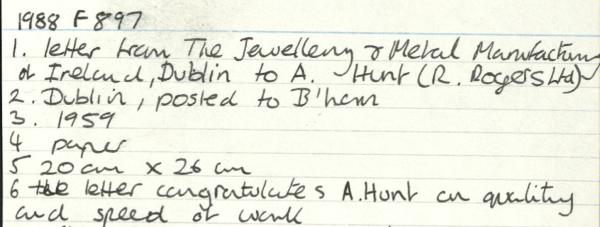 1988 F 897
1. letter from The Jewellery & Metal Manufacturing
of Ireland, Dublin to A. Hunt (R. Rogers Ltd)
2. Dublin, posted to B'ham
3. 1959
4 paper
5 20 cm x 26 cm
6 the letter congratulates A. Hunt on quality
and speed of work